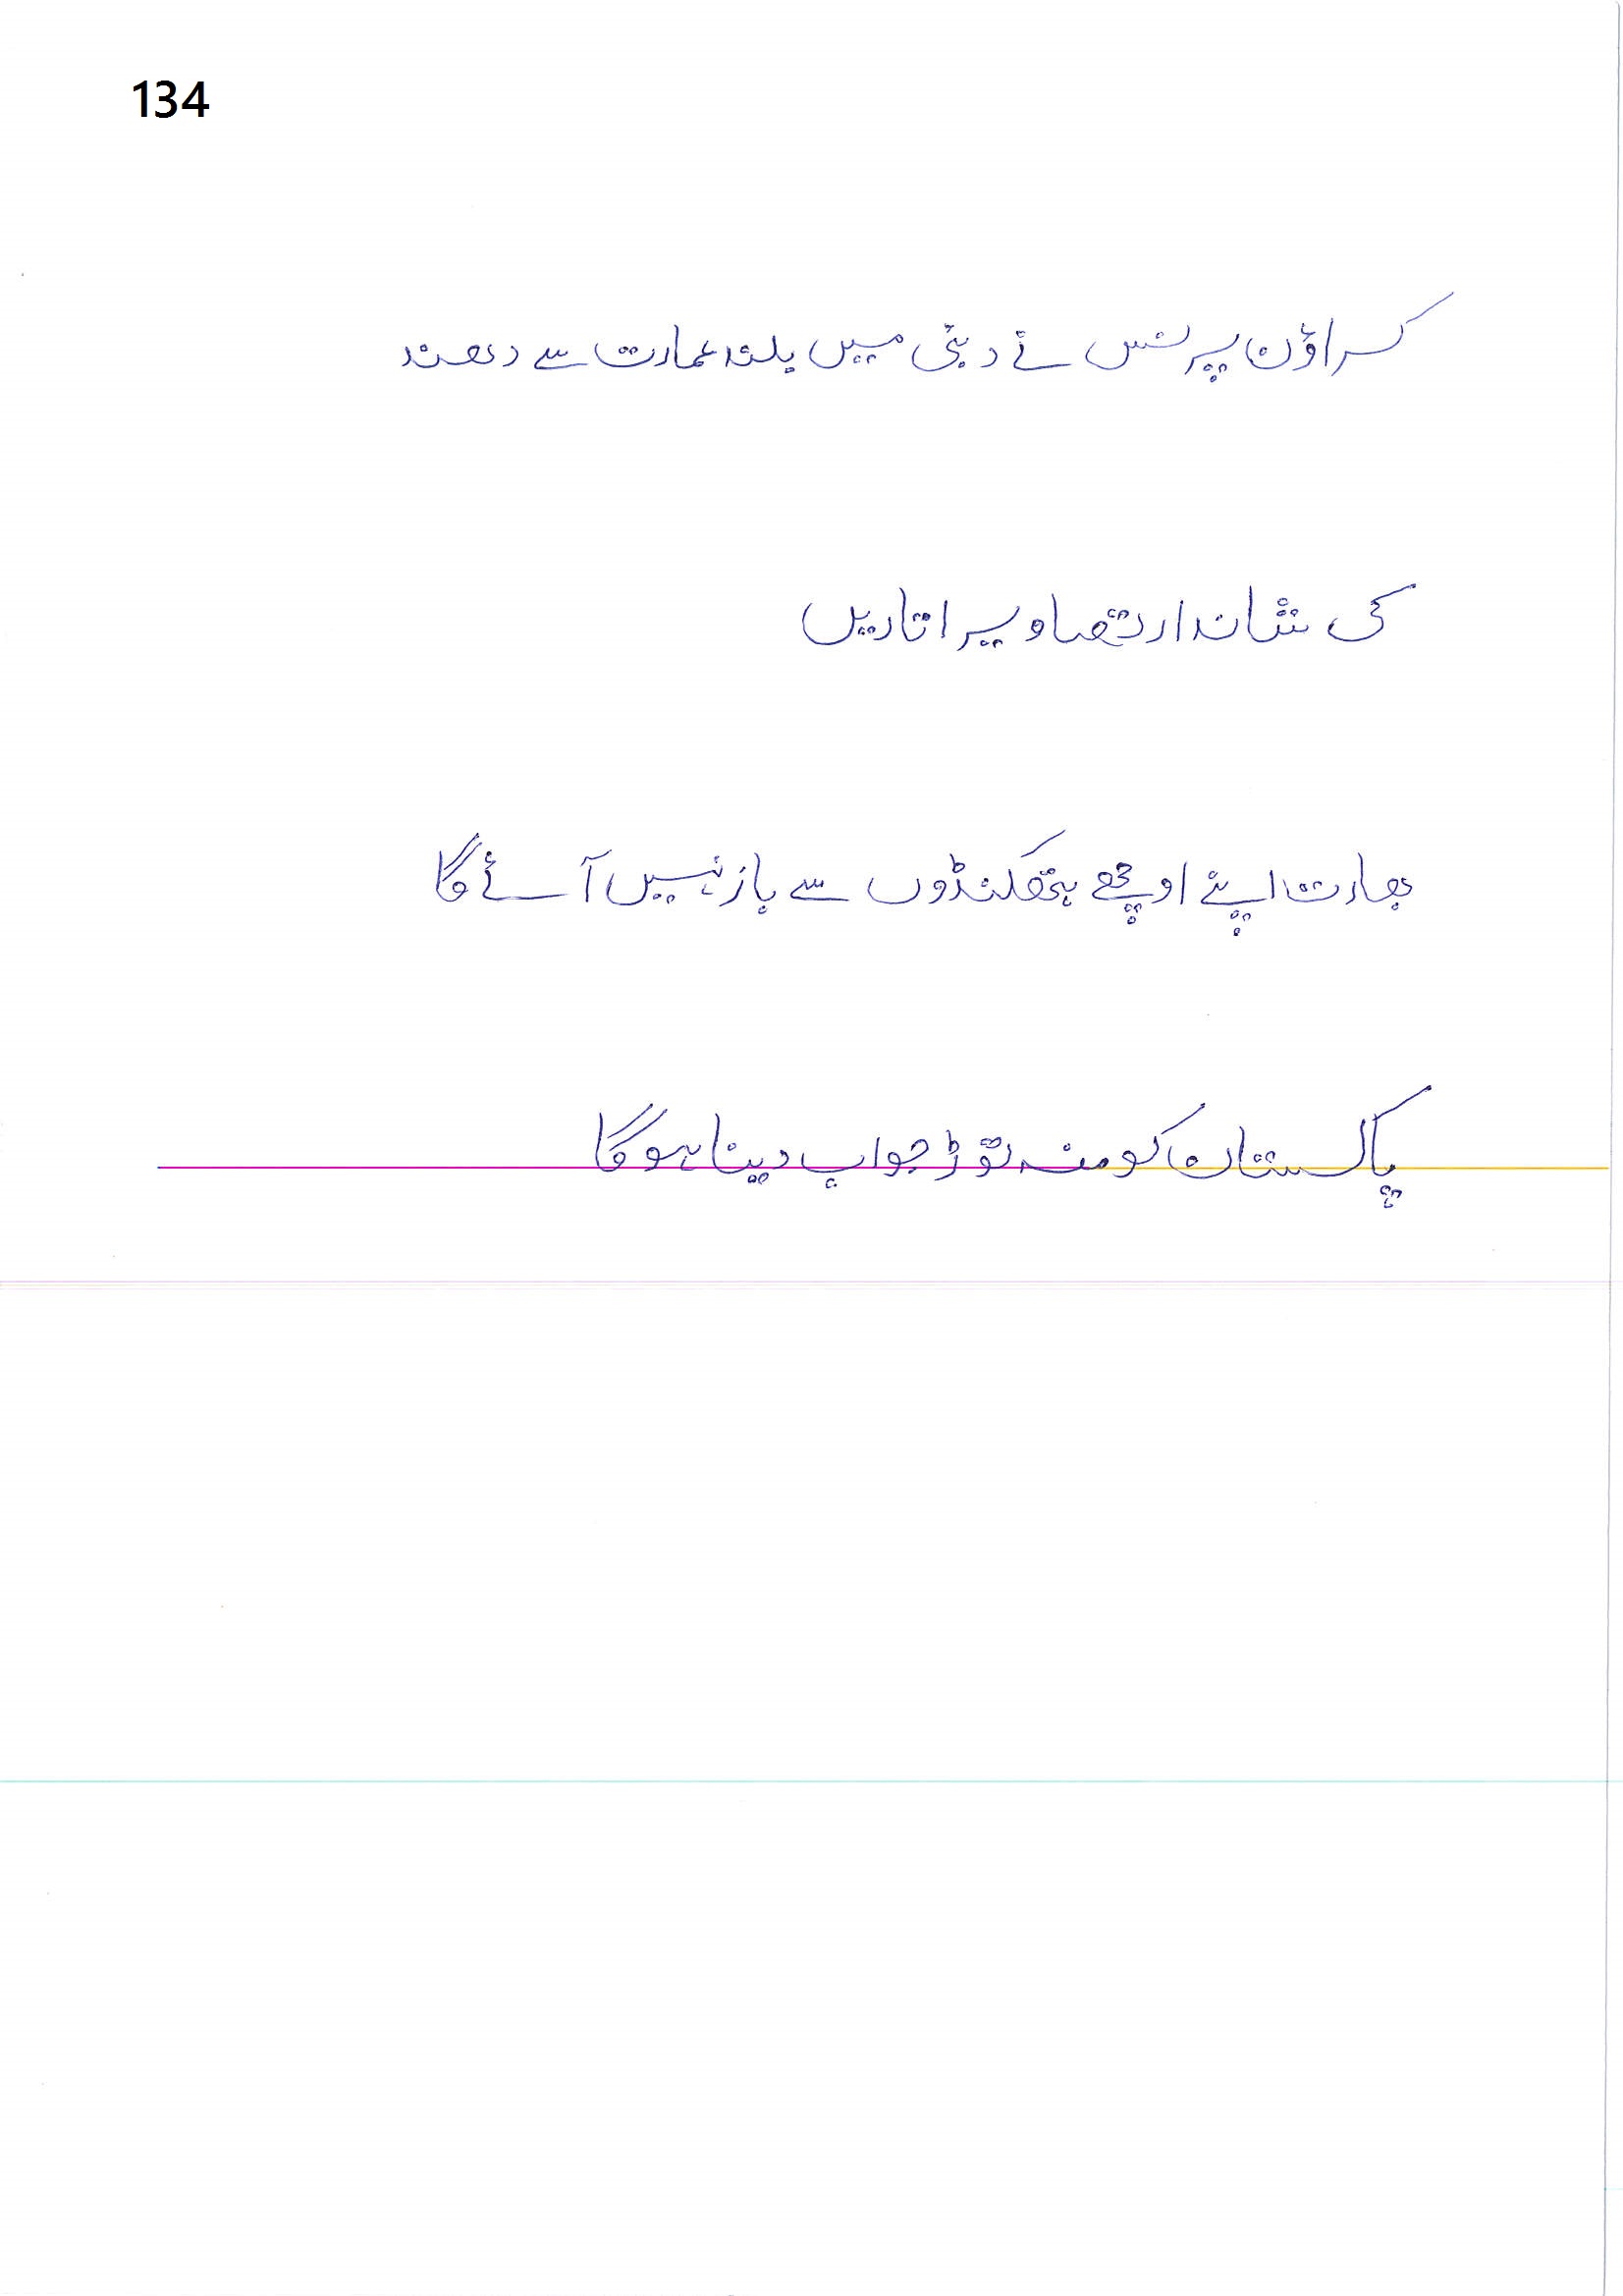 134
کراؤن پرنس نے دبئی میں بلند عمارت سے دھند
کی شاندار تصاویر اتاریں
بھارت اپنے اوچھے ہتھکنڈوں سے باز نہیں آئے گا
پاکستان کو منہ توڑ جواب دینا ہو گا